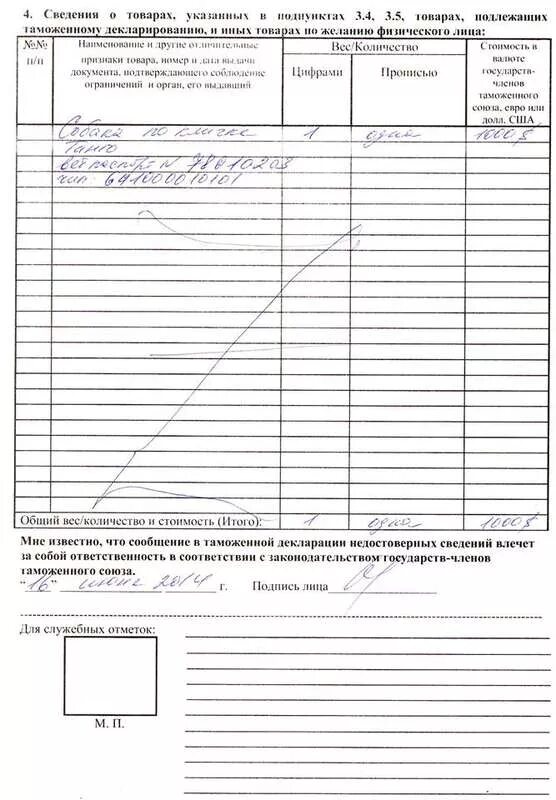 4. Сведения о товарах, указанных в подпунктах 3.4, 3.5, товарах, подлежащих
таможенному декларированию, и иных товарах по желанию физического лица:
№№
п/п
Наименование и другие отличительные
признаки товара, номер и дата выдачи
документа, подтверждающего соблюдение
ограничений и орган, его выдавший
Вес/Количество
Цифрами
Прописью
Стоимость в
валюте
государств-
членов
таможенного
союза, евро или
долл. США
Собака по кличке 1 одна 1000$
Танго
ветпаспорт N
чип: 641000010101
Общий вес/количество и стоимость (Итого): 1 одна 1000$
Мне известно, что сообщение в таможенной декларации недостоверных сведений влечет
за собой ответственность в соответствии с законодательством государств-членов
таможенного союза.
"16" июня 2014 г. Подпись лица
Для служебных отметок:
М. П.